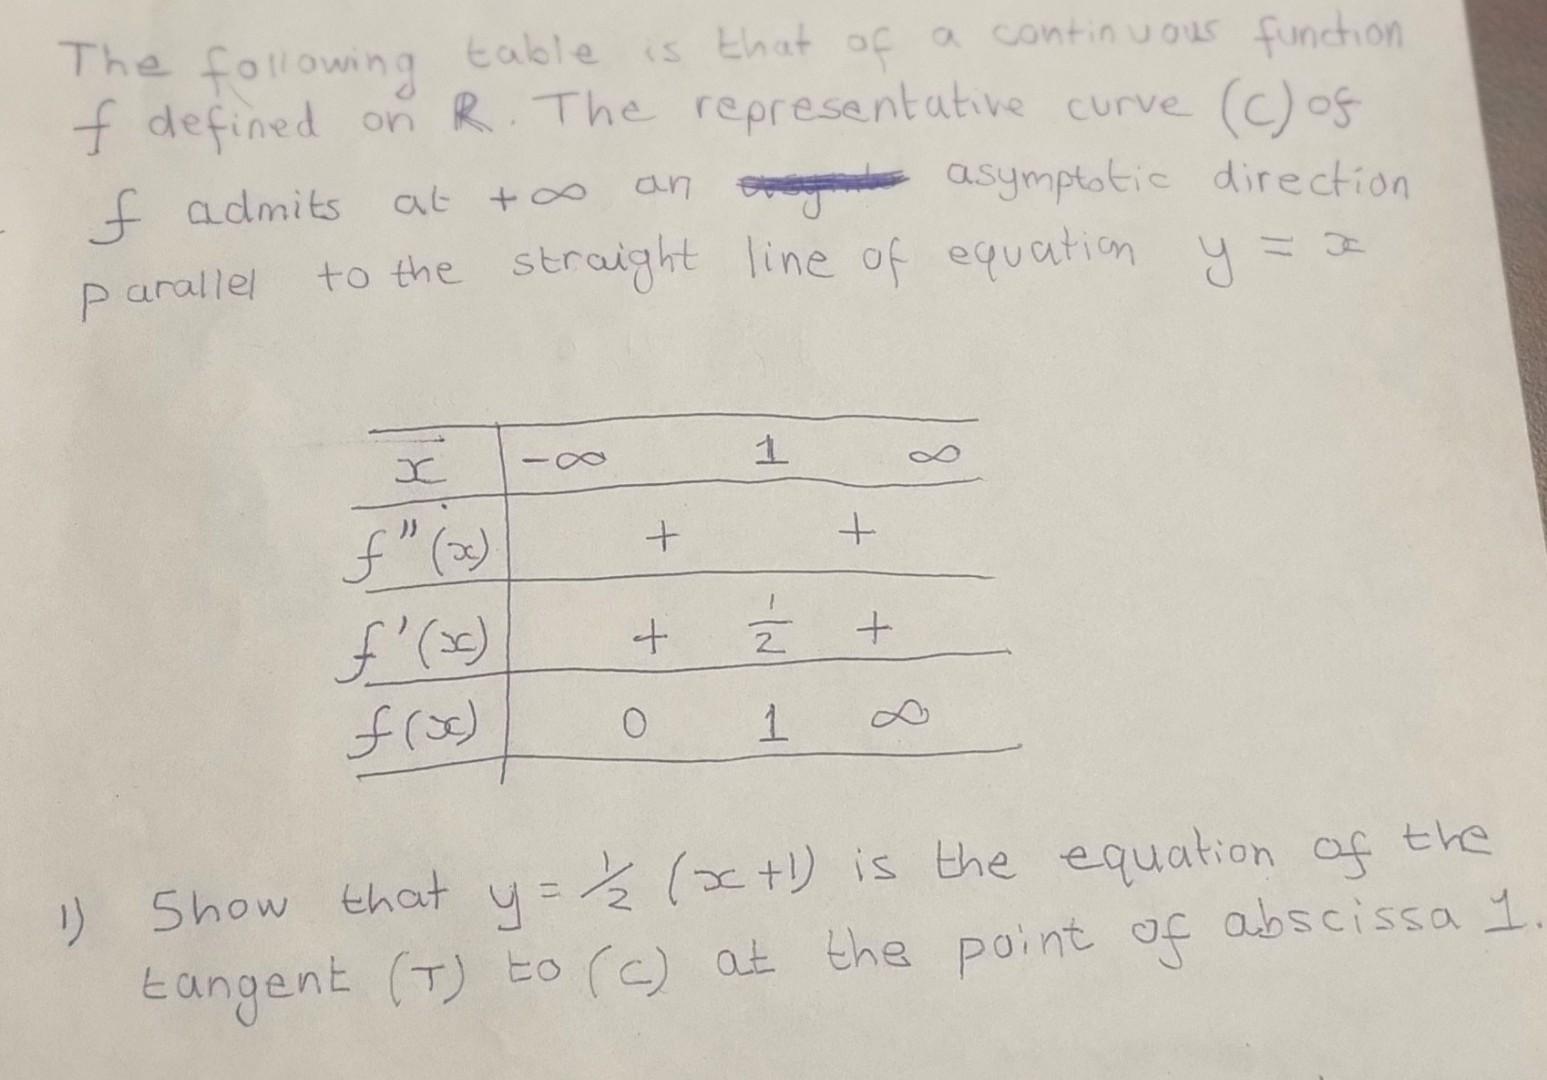 The following table is that of a continuous function
f defined on R. The representative curve (C) of
f admits at +∞ an asymptotic direction
parallel to the straight line of equation y = x
x -∞ 1 ∞
f''(x) + +
f'(x) + 1/2 +
f(x) 0 1 ∞
1) Show that y = 1/2 (x+1) is the equation of the
tangent (T) to (C) at the point of abscissa 1.